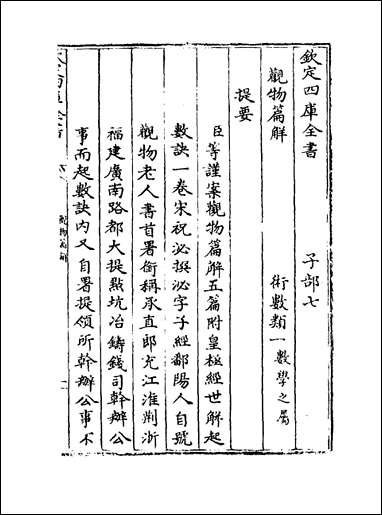 欽定四庫全書
子部七
觀物篇解
術數類一數學之屬
提要
臣等謹案觀物篇解五篇附皇極經世解起
數訣一卷宋祝泌撰泌字子經鄱陽人自號
觀物老人書首署銜稱承直郎充江淮荆浙
福建廣南路都大提㸃坑冶鑄錢司幹辦公
事而起數訣内又自署提領所幹辦公事不
觀物篇解